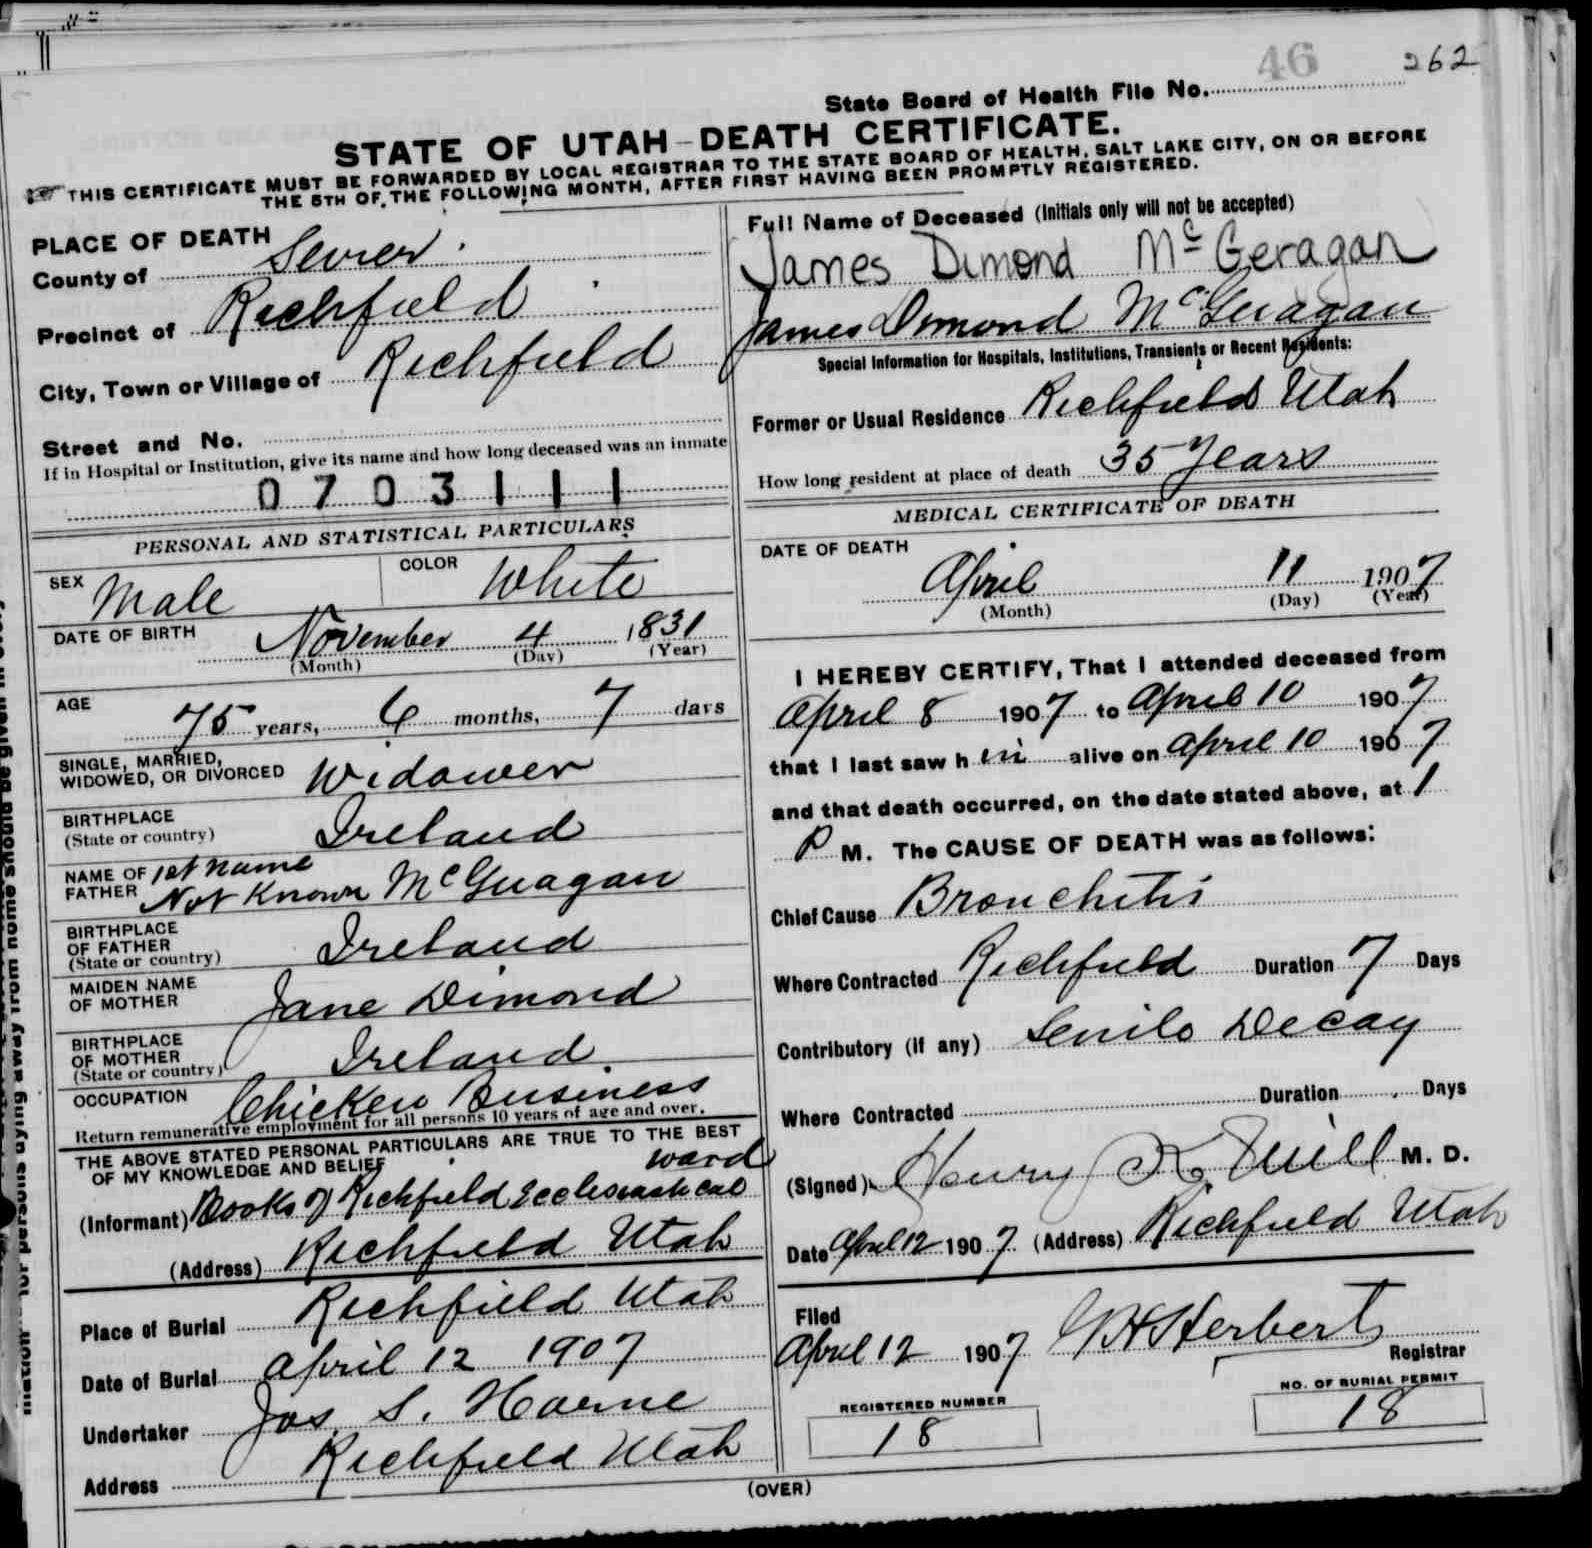 46 262
State Board of Health File No.
STATE OF UTAH-DEATH CERTIFICATE.
THIS CERTIFICATE MUST BE FORWARDED BY LOCAL REGISTRAR TO THE STATE BOARD OF HEALTH, SALT LAKE CITY, ON OR BEFORE
THE 5TH OF THE FOLLOWING MONTH, AFTER FIRST HAVING BEEN PROMPTLY REGISTERED.
PLACE OF DEATH
County of Sevier
Precinct of Richfield
City, Town or Village of Richfield
Street and No.
If in Hospital or Institution, give its name and how long deceased was an inmate
0703111
PERSONAL AND STATISTICAL PARTICULARS
SEX Male COLOR White
DATE OF BIRTH November 4 1831
(Month) (Day) (Year)
AGE 75 years, 6 months, 7 days
SINGLE, MARRIED,
WIDOWED, OR DIVORCED Widower
BIRTHPLACE
(State or country) Ireland
NAME OF FATHER 1st name
Not Known McGuagan
BIRTHPLACE
OF FATHER
(State or country) Ireland
MAIDEN NAME
OF MOTHER Jane Dimond
BIRTHPLACE
OF MOTHER
(State or country) Ireland
OCCUPATION Chicken Business
Return remunerative employment for all persons 10 years of age and over.
THE ABOVE STATED PERSONAL PARTICULARS ARE TRUE TO THE BEST
OF MY KNOWLEDGE AND BELIEF
ward
(Informant) Books of Richfield Ecclesiastical
(Address) Richfield Utah
Place of Burial Richfield Utah
Date of Burial April 12 1907
Undertaker Jos. S. Horne
Address Richfield Utah
Full Name of Deceased (Initials only will not be accepted)
James Dimond Mc Geragan
James Dimond McGuagan
Special Information for Hospitals, Institutions, Transients or Recent Residents:
Former or Usual Residence Richfield Utah
How long resident at place of death 35 Years
MEDICAL CERTIFICATE OF DEATH
DATE OF DEATH
April 11 1907
(Month) (Day) (Year)
I HEREBY CERTIFY, That I attended deceased from
April 8 1907 to April 10 1907
that I last saw h im alive on April 10 1907
and that death occurred, on the date stated above, at 1
P M. The CAUSE OF DEATH was as follows:
Chief Cause Bronchitis
Where Contracted Richfield Duration 7 Days
Contributory (if any) Senile Decay
Where Contracted Duration Days
(Signed) Henry K. Neill M. D.
Date April 12 1907 (Address) Richfield Utah
Filed
April 12 1907 Herbert
Registrar
REGISTERED NUMBER
18
NO. OF BURIAL PERMIT
18
(OVER)